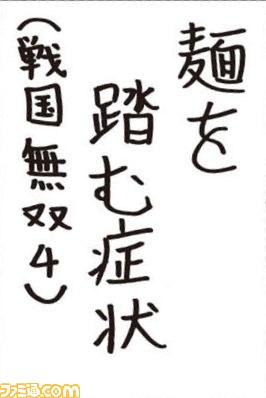 麺を
踏む症状
(戦国無双4)
ファミ通com